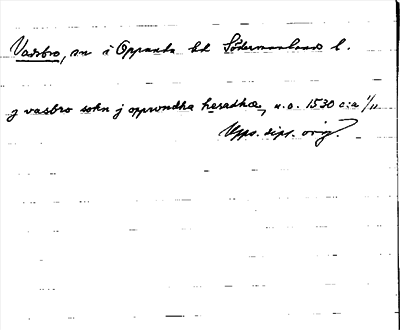 Vadsbro, sn i Oppunda hd Södermanland l.
j vasbro sokn j oppwndha heradhæ, u.o. 1530 c:a 1/11
Upps. dipl. orig.